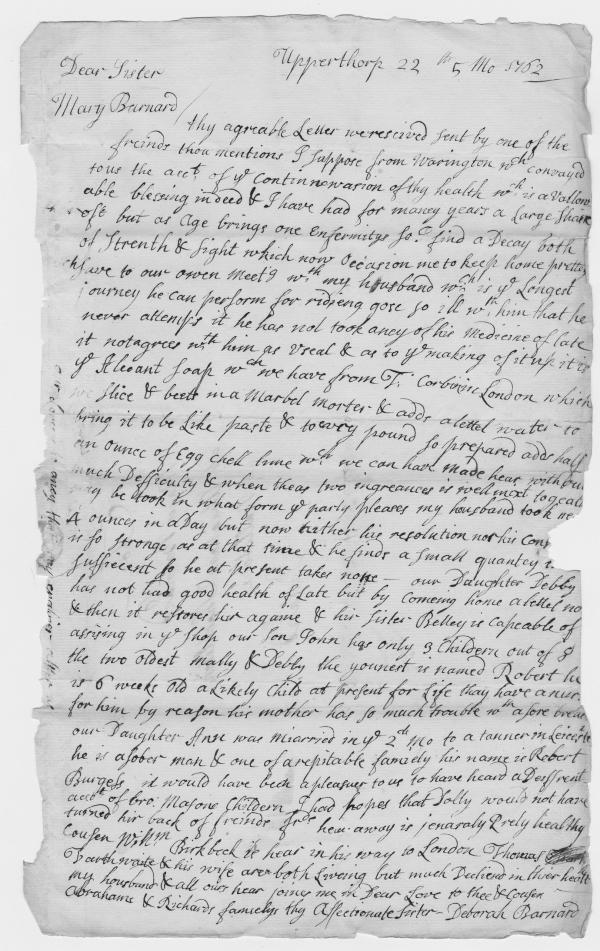 Upperthorp 22th 5 Mo 1762
Dear Sister
Mary Barnard /
thy agreable Letter we received sent by one of the
freinds thou mentions I suppose from Warington wch convayed
to us the acct of ye Continnewasion of thy health wch is a Vallow
able blessing indeed & I have had for maney years a Large Share
oft but as Age brings one Enfermitys so I find a Decay both
of Strenth & Sight which now Occasion me to keep home pretty
to our owen Meetg wth my housband wch is ye Longest
journey he can perform for ridieng gose so ill wth him that he
never attempts it he has not took aney of his Medicine of late
it not agrees with him as Useal & as to ye making of it up it is
ye Alecant Soap wch we have from T: London which
we slice & beet in a Marbel Morter & adds a lettel water to
bring it to be Like paste & to every pound so prepared adds half
an ounce of Egg Chell lime wch we can have made hear without
much Defficulty & when theas two ingreances is well mext together
may be took in what form ye party pleases my housband took
4 ounces in a Day but now nather his resolution nor his
is so stronge as at that time & he finds a small quantey
suffiecent so he at present takes none — our Daughter Debby
has not had good health of Late but by comeing home a lettel
& then it restores hir againe & hir Sister Betley is capeable of
assising in ye Shop our Son John has only 3 Childern out of 8
the two oldest Mally & Debby the youngest is named Robert he
is 6 weeks old a Likely Child at present for Life thay have a nurs
for him by reason his mother has so much trouble wth a sore breast
our Daughter Anne was miarried in ye 2th Mo to a tanner in
he is a sober man & one of a repitable famiely his name is Robert
Burgess it would have been a pleasuer to us to have heard a Deffrent
acctt of bro: Masons Childern I had hopes that Dolly would not have
turned hir back of freinds hear away is jenaraly Prety healthy
Cousen Willm Birkbeck is hear in his way to London Thomas
Farthwaite & his wife are both Liveing but much Decliend in ther health
my housband & all ours hear joines me in Dear Love to thee & Cousen
Abrahams & Richards famielys thy Affectionate Sister – Deborah Barnard